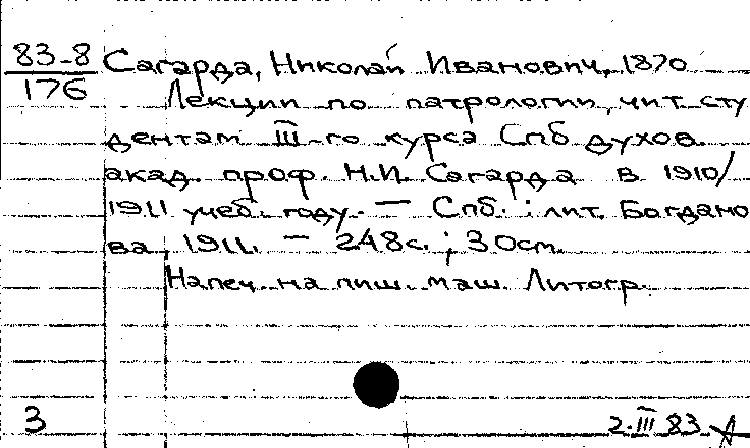 83-8 Сагарда, Николай Иванович, 1870
176 Лекции по патрологии, чит. сту
дентам III-го курса Спб духов.
акад. проф. Н.И. Сагарда в 1910/
1911 учеб. году. — Спб. : лит. Богдано
ва, 1911. — 248с. ; 30см.
Напеч. на пиш. маш. Литогр.
3 2.III 83